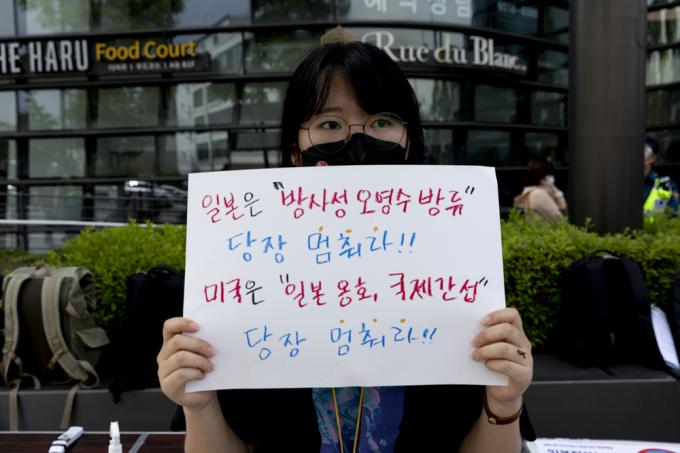 THE HARU Food Court
Rue du Blanc
일본은 "방사성 오염수 방류"
당장 멈춰라!!
미국은 "일본 옹호, 국제간섭"
당장 멈춰라!!